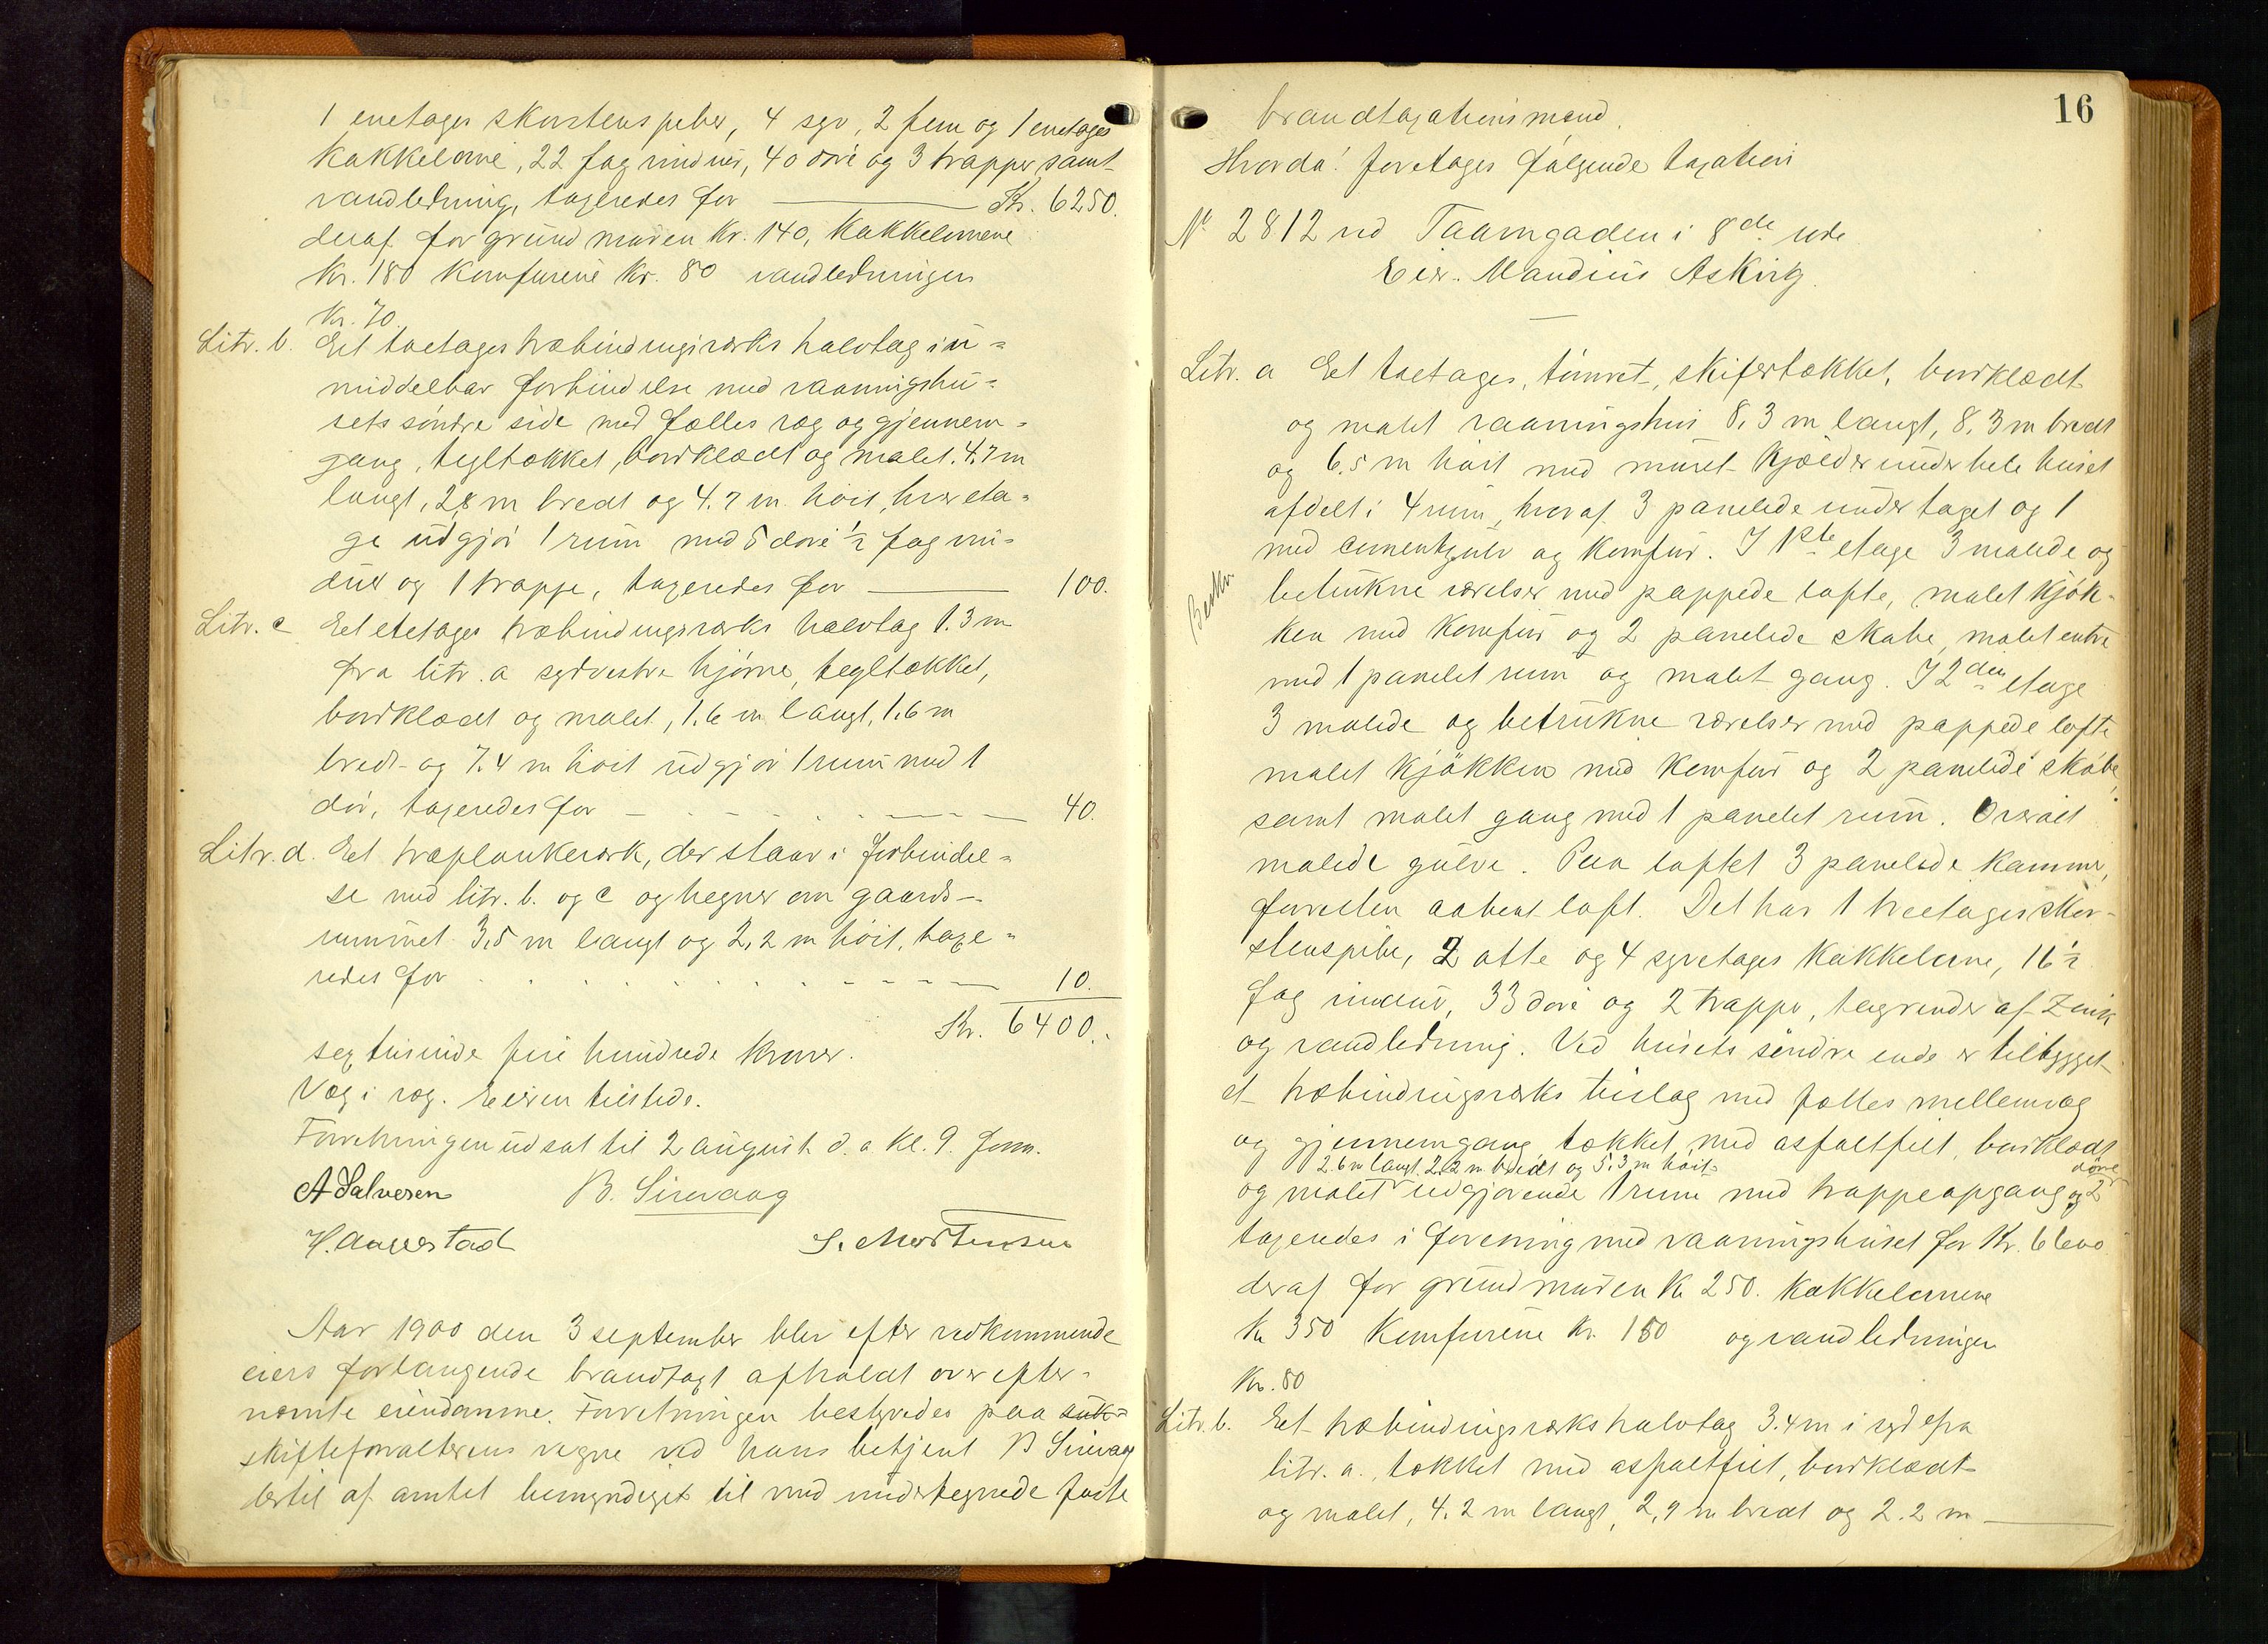 1 enetages skorstenspiber, 4 syv, 2 fem og 1 enetages
kakkelovne, 22 fag vinduer, 40 döre og 3 trapper, samt
vandledning, taxeredes for Kr. 6250.
deraf for grundmuren Kr. 140, kakkelovnene
Kr. 180 komfurene Kr. 80 vandledningen
Kr. 70.
Litr. b. Eet toetages træbindingsværks halvtag i u=
middelbar forbindelse med vaaningshu=
sets söndre side med fælles væg og gjennem=
gang, tegltækket, bordklædt og malet. 4.7 m
langt, 2,8 m bredt og 4.7 m. höit, hver eta=
ge udgjör 1 rum med 5 döre ½ fag vin=
duer og 1 trappe, taxeredes for 100.
Litr. c Eet etetages træbindingsværks halvtag 1.3 m
fra litr. a sydvestre hjörne, tegltækket,
bordklædt og malet, 1.6 m langt, 1.6 m
bredt og 7.4 m höit udgjör 1 rum med 1
dör, taxeredes for 40.
Litr. d. Eet træplankeværk, der staar i forbindel=
se med litr. b. og c og hegner om gaards-
rummet 3,5 m langt og 2,2 m höit, taxe=
redes for 10.
Kr. 6400.
sextusinde fire hundrede kroner.
Væg i væg. Eieren tilstede.
Forretningen udsat til 2 august d. a. kl. 9. form.
A Salvesen B. Sirevaag
H. Aarrestad S. Mortensen
Aar 1900 den 3 september blev efter vedkommende
eiers forlangende brandtaxt afholdt over efter-
nævnte eiendomme. Forretningen bestyredes paa
skifteforvalterens vegne ved hans betjent B Sirevaag
dertil af amtet bemyndiget til med undertegnede faste
16
brandtaxationsmænd.
Hvorda! foretages fölgende taxation
No 2812 ved Taarngaden i 8de rode
Eier. Mandius Askvig.
Litr. a Eet toetages, tömret, skifertækket, bordklædt
og malet vaaningshus 8,3 m langt, 8,3 m bredt
og 6.5 m höit med muret kjælder under hele huset
afdelt i 4 rum, hvoraf 3 panelede under taget og 1
med cementgulv og komfur. I 1ste etage 3 malede og
betrukne værelser med pappede lofte, malet kjök-
ken med komfur og 2 panelede skabe, malet entre
med 1 panelet rum og malet gang. I 2den etage
3 malede og betrukne værelser med pappede lofte
malet kjökken med komfur og 2 panelede skabe,
samt malet gang med 1 panelet rum. Overalt
malede gulve. Paa loftet 3 panelede kammer,
foresten aabent loft. Det har 1 treetages skor-
stenspibe, 2 otte og 4 syvetages kakkelovne, 16½
fag vinduer, 33 döre og 2 trapper, tagrender af zink
og vandledning. Ved husets söndre ende er tilbygget
et træbindingsværks tilslag med fælles mellemvæg
og gjennemgang tækket med asfaltfilt, bordklædt
2.6 m langt 2.2 m bredt og 5.3 m höit döre
og malet udgjörende 1 rum med trappeopgang og 2
taxeredes i forening med vaaningshuset for Kr. 6600
deraf for grundmuren Kr 250. kakkelovnene
Kr 350 komfurene Kr. 150 og vandledningen
Kr. 80
Litr. b. Eet træbindingsværks halvtag 3.4 m i syd fra
litr. a., tækket med asfaltfilt, bordklædt
og malet, 4.2 m langt, 2,9 m bredt og 2.2 m